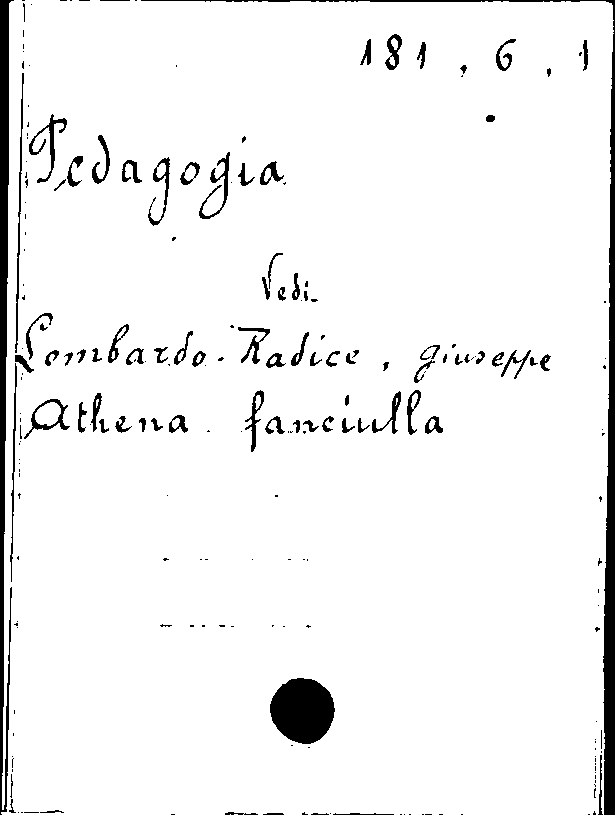 181.6.1
Pedagogia
Vedi
Lombardo-Radice, Giuseppe
Athena fanciulla